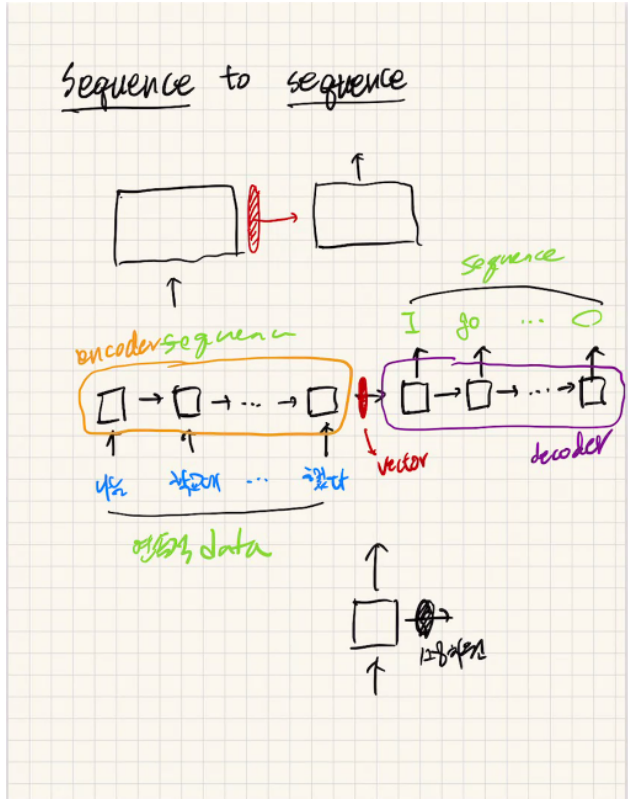 Sequence to sequence
sequence
I go ... O
encoder sequence
vector
decoder
나는 학교에 ... 갔다
연속적 data
128차원